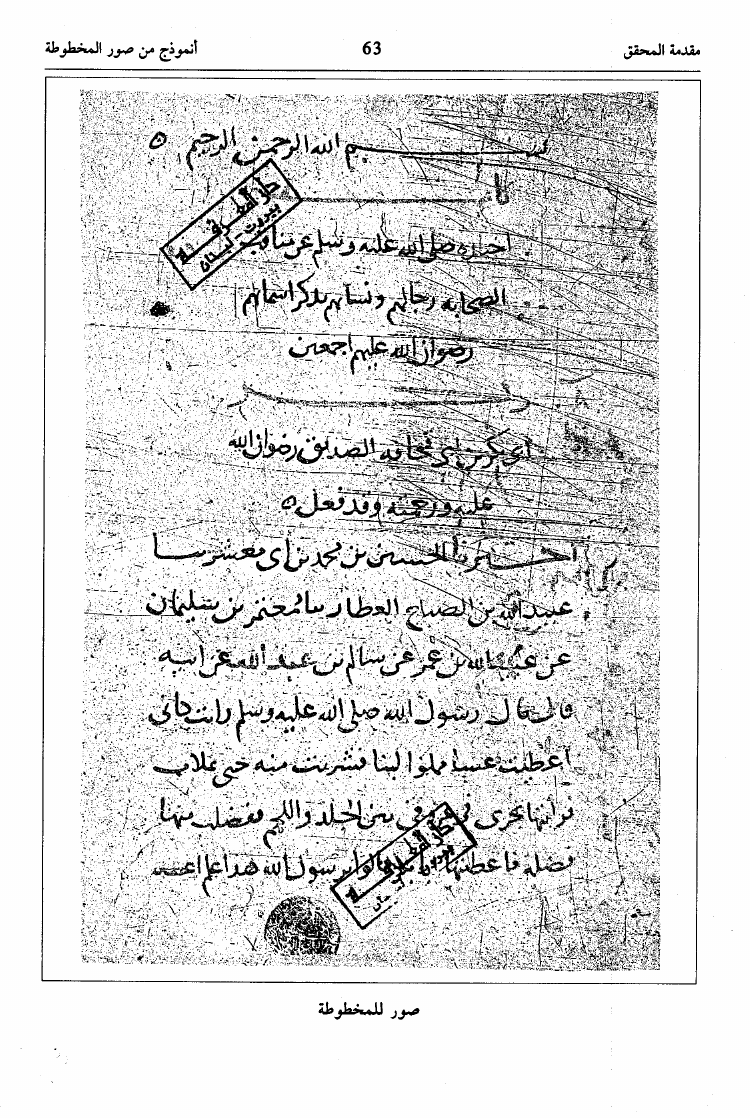 مقدمة المحقق
63
أنموذج من صور المخطوطة
بسم الله الرحمن الرحيم
دار المعرفة
بيروت لبنان
اخباره صلى الله عليه وسلم عن مناقب
الصحابه رجالهم ونسائهم بذكر اسمائهم
رضوان الله عليهم اجمعين
ابى بكر بن ابى قحافه الصديق رضوان الله
عليه ورحمته وقد فعل
اخبرنا الحسين بن محمد بن ابى معشر سا
عبيد الله بن الصباح العطار سا معتمر بن سليمان
عن عبيد الله بن عمر عن سالم بن عبد الله عن ابيه
قال قال رسول الله صلى الله عليه وسلم رايت كانى
اعطيت عسا مملوا لبنا فشربت منه حتى تملات
فرايتها تجرى فى عروقى بين الجلد واللحم ففضلت منها
فضله فاعطيتها ابا بكر قالوا يرسول الله هذا علم اعطـ
دار المعرفة
صور للمخطوطة